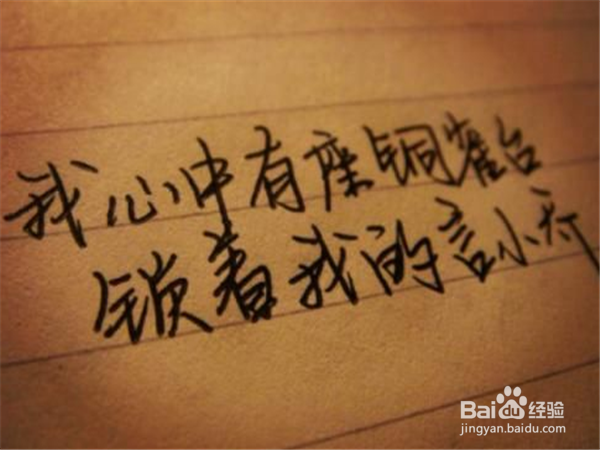 我心中有座铜雀台
锁着我的言小乔
Baidu经验
jingyan.baidu.com